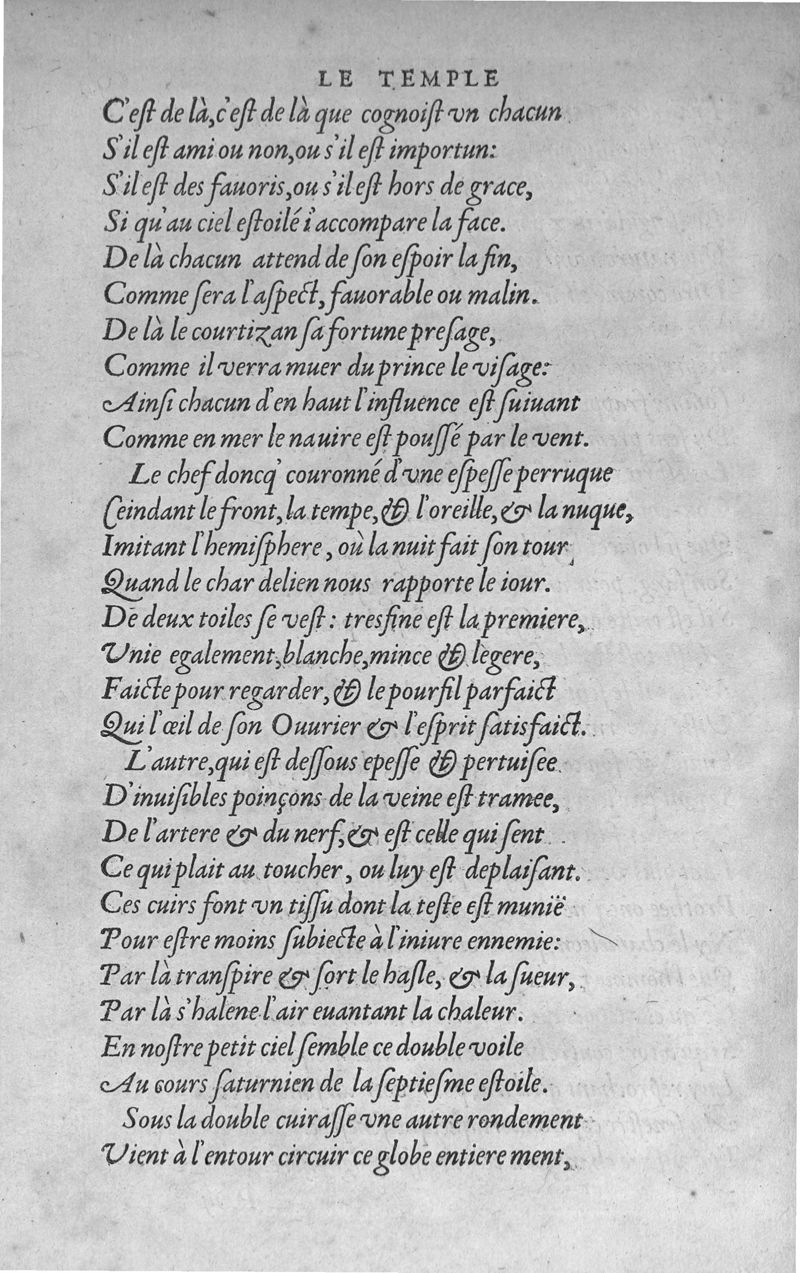 LE TEMPLE
C'eſt de là, c'eſt de là que cognoiſt vn chacun
S'il eſt ami ou non, ou s'il eſt importun:
S'il eſt des fauoris, ou s'il eſt hors de grace,
Si qu'au ciel eſtoilé i'accompare la face.
De là chacun attend de ſon eſpoir la fin,
Comme ſera l'aſpect, fauorable ou malin.
De là le courtizan ſa fortune preſage,
Comme il verra muer du prince le viſage:
Ainſi chacun d'en haut l'influence eſt ſuiuant
Comme en mer le nauire eſt pouſſé par le vent.
Le chef doncq' couronné d'vne eſpeſſe perruque
Ceindant le front, la tempe, & l'oreille, & la nuque,
Imitant l'hemiſphere, où la nuit fait ſon tour
Quand le char delien nous rapporte le iour.
De deux toiles ſe veſt: tresfine eſt la premiere,
Vnie egalement, blanche, mince & legere,
Faicte pour regarder, & le pourfil parfaict
Qui l'œil de ſon Ouurier & l'eſprit ſatisfaict.
L'autre, qui eſt deſſous epeſſe & pertuiſee
D'inuiſibles poinçons de la veine eſt tramee,
De l'artere & du nerf, & eſt celle qui ſent
Ce qui plait au toucher, ou luy eſt deplaiſant.
Ces cuirs font vn tiſſu dont la teſte eſt munië
Pour eſtre moins ſubiecte à l'iniure ennemie:
Par là tranſpire & ſort le haſle, & la ſueur,
Par là s'halene l'air euantant la chaleur.
En noſtre petit ciel ſemble ce double voile
Au cours ſaturnien de la ſeptieſme eſtoile.
Sous la double cuiraſſe vne autre rondement
Vient à l'entour circuir ce globe entiere ment,